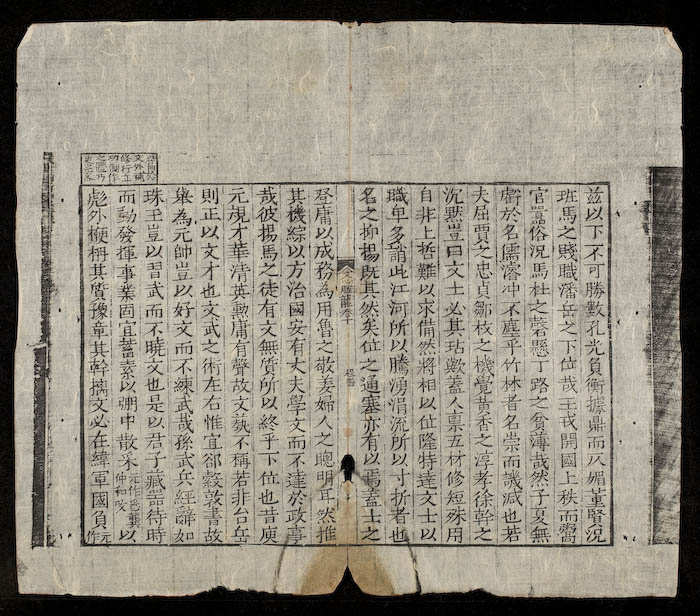 茲以下不可勝數孔光負衡據鼎而仄媚董賢況
班馬之賤職潘岳之下位哉王戎開國上秩而鬻
官囂俗況馬杜之磬懸丁路之貧薄哉然子夏無
虧於名儒濬冲不塵乎竹林者名崇而譏減也若
夫屈賈之忠貞鄒枚之機覺黃香之淳孝徐幹之
沉默豈曰文士必其玷歟蓋人禀五材修短殊用
自非上哲難以求備然將相以位隆特達文士以
職卑多誚此江河所以騰湧涓流所以寸折者也
名之抑揚既其然矣位之通塞亦有以焉蓋士之
文心雕龍卷十
登庸以成務為用魯之敬姜婦人之聰明耳然推
其機綜以方治國安有丈夫學文而不達於政事
哉彼揚馬之徒有文無質所以終乎下位也昔庾
元規才華清英勳庸有聲故文藝不稱若非台岳
則正以文才也文武之術左右惟宜郤縠敦書故
舉為元帥豈以好文而不練武哉孫武兵經辭如
珠玉豈以習武而不曉文也是以君子藏器待時
而動發揮事業固宜蓄素以弸中散采元作悉龔仲和改以
彪外楩柟其質豫章其幹摛文必在緯軍國負元作
文外補
修行立
功制作
之體乃